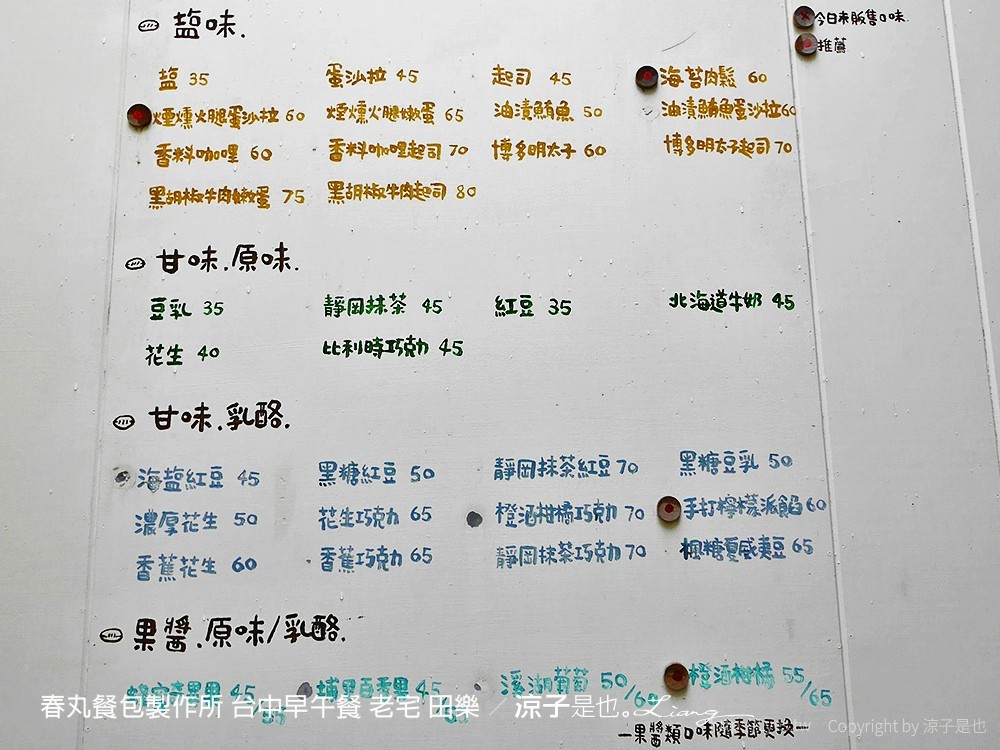 塩味.
今日未販售口味.
推薦
塩 35 蛋沙拉 45 起司 45 海苔肉鬆 60
煙燻火腿蛋沙拉 60 煙燻火腿嫩蛋 65 油漬鮪魚 50 油漬鮪魚蛋沙拉60
香料咖哩 60 香料咖哩起司 70 博多明太子 60 博多明太子起司 70
黑胡椒牛肉嫩蛋 75 黑胡椒牛肉起司 80
甘味.原味.
豆乳 35 靜岡抹茶 45 紅豆 35 北海道牛奶 45
花生 40 比利時巧克力 45
甘味.乳酪.
海塩紅豆 45 黑糖紅豆 50 靜岡抹茶紅豆 70 黑糖豆乳 50
濃厚花生 50 花生巧克力 65 橙酒柑橘巧克力 70 手打檸檬派餡 60
香蕉花生 60 香蕉巧克力 65 靜岡抹茶巧克力 70 楓糖夏威夷豆 65
果醬.原味/乳酪.
45 埔里百香果 45 溪湖葡萄 50/60 橙酒柑橘 55/65
55
春丸餐包製作所 台中早午餐 老宅 田樂 / 涼子是也。Liang
果醬類口味隨季節更換
Copyright by 涼子是也